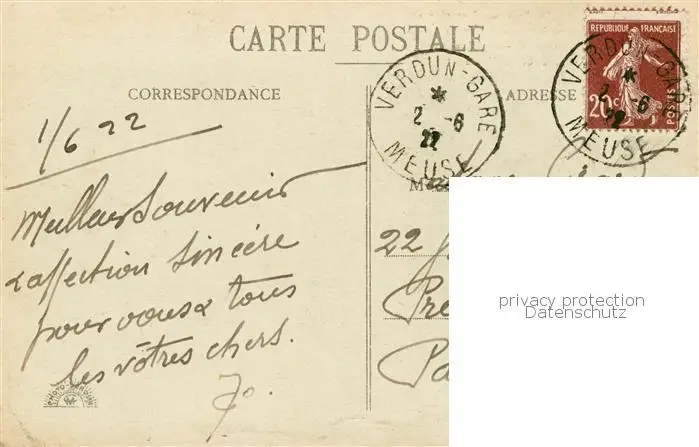 CARTE POSTALE
CORRESPONDANCE
ADRESSE
REPUBLIQUE FRANÇAISE
20c
POSTES
VERDUN-GARE
2 -6
22
MEUSE
VERDUN-GARE
2 -6
22
MEUSE
1/6 22
Meilleur Souvenir
& affection Sincère
pour vous & tous
les vôtres chers.
M
22
Pa
privacy protection
Datenschutz